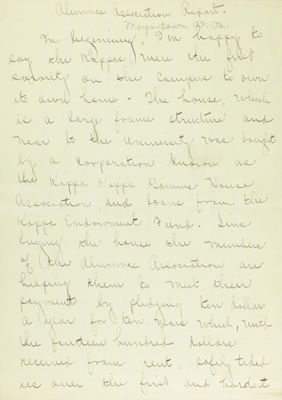 Alumnae Association Report.
Morgantown, W. Va.
In beginning, I'm happy to
say the Kappas were the first
sorority on the campus to own
its own home. The house, which
is a large frame structure and
near to the University was bought
by a corporation known as
the Kappa Kappa Gamma House
Association, and loans from the
Kappa Endowment Fund. Since
buying the house the members
of the Alumnae Association are
helping them to meet their
payments by pledging ten dollars
a year for ten years which, with
the fourteen hundred dollars
received from rent, safely tided
us over the first and hardest